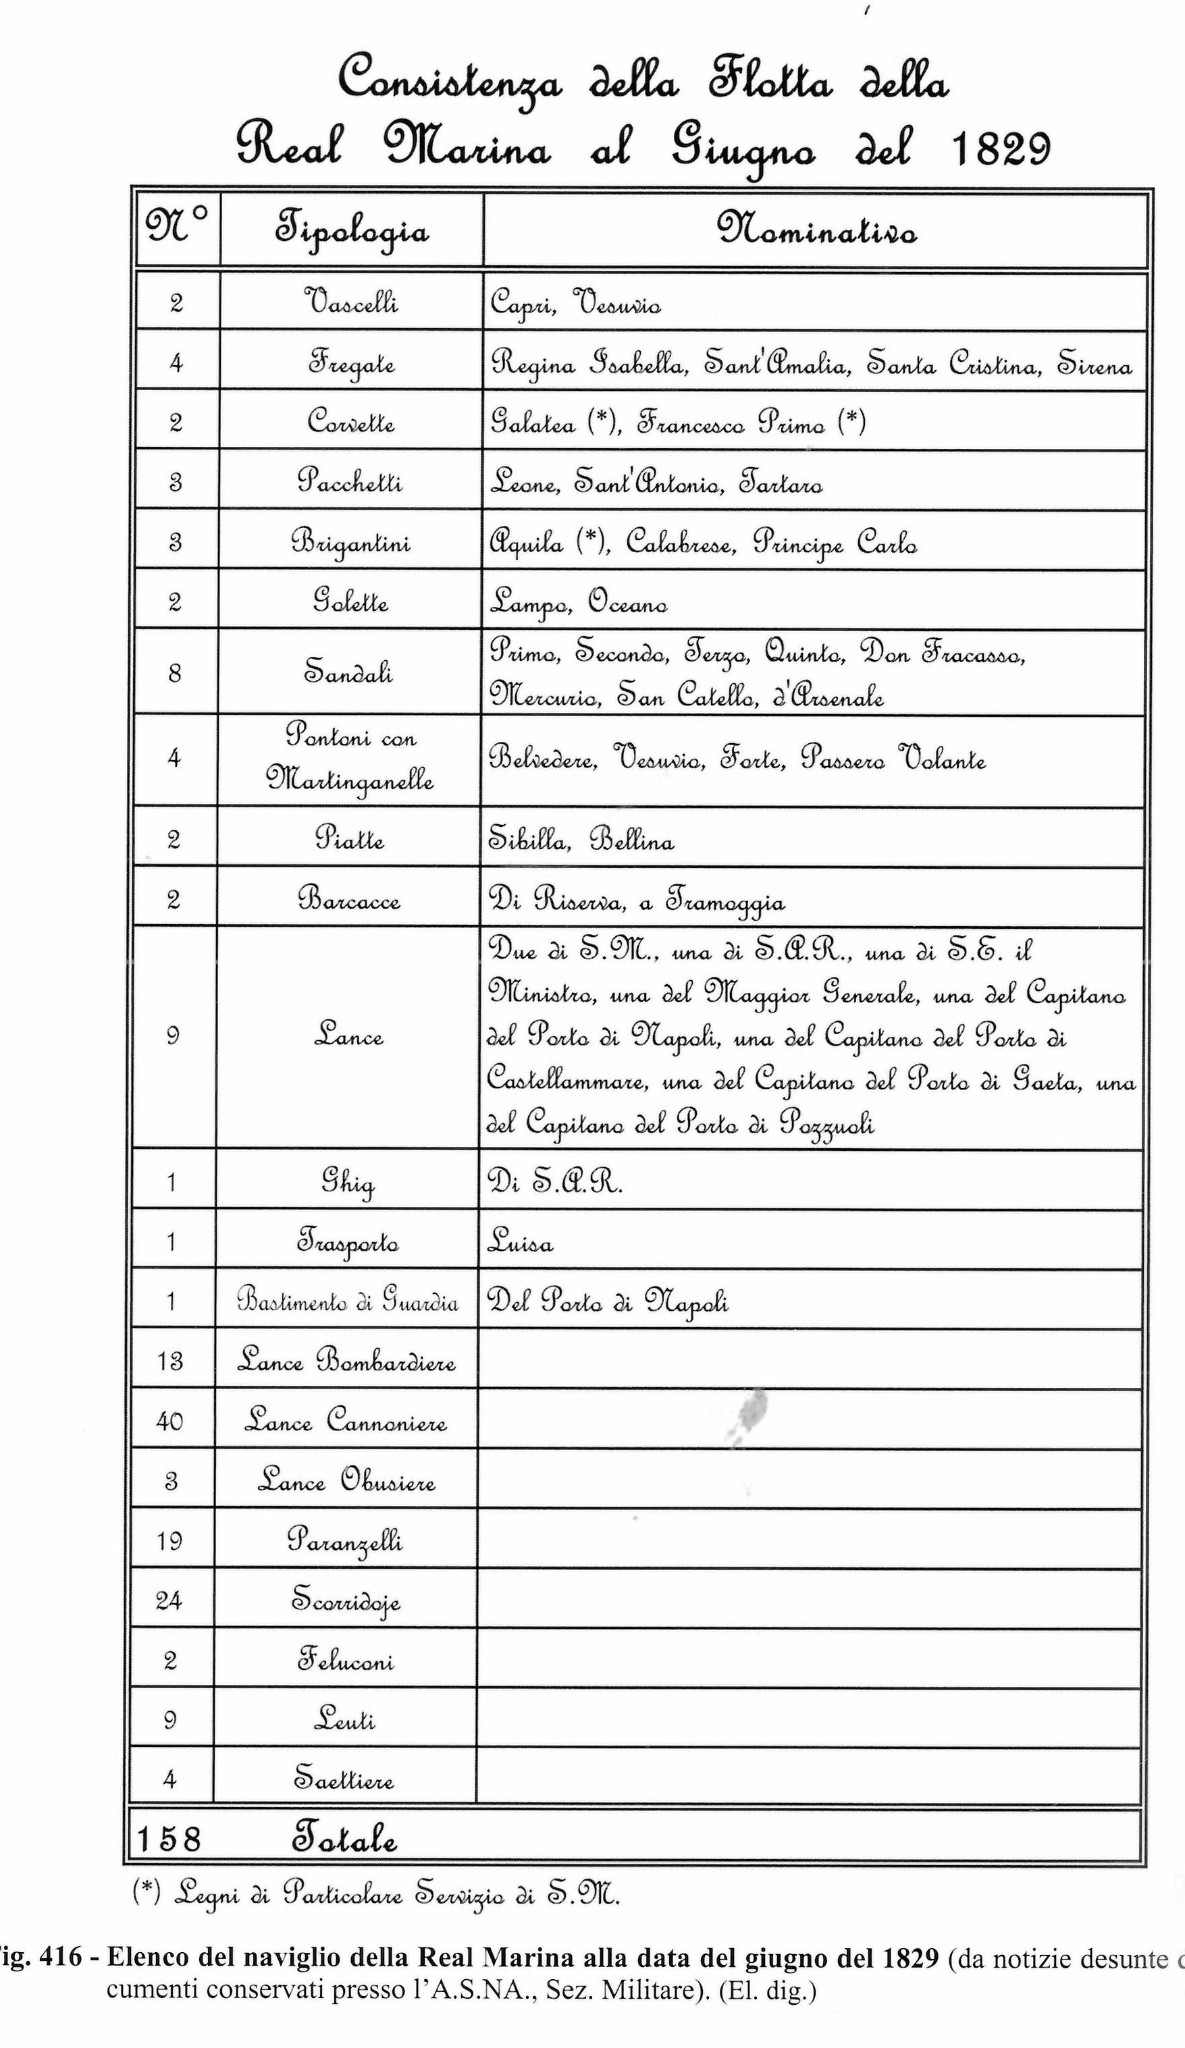 Consistenza della Flotta della
Real Marina al Giugno del 1829
N° Tipologia Nominativo
2 Vascelli Capri, Vesuvio
4 Fregate Regina Isabella, Sant'Amalia, Santa Cristina, Sirena
2 Corvette Galatea (*), Francesco Primo (*)
3 Pacchetti Leone, Sant'Antonio, Tartaro
3 Brigantini Aquila (*), Calabrese, Principe Carlo
2 Golette Lampo, Oceano
8 Sandali Primo, Secondo, Terzo, Quinto, Don Fracasso,
Mercurio, San Catello, d'Arsenale
4 Pontoni con
Martinganelle Belvedere, Vesuvio, Forte, Passero Volante
2 Piatte Sibilla, Bellina
2 Barcacce Di Riserva, a Tramoggia
9 Lance Due di S.M., una di S.A.R., una di S.E. il
Ministro, una del Maggior Generale, una del Capitano
del Porto di Napoli, una del Capitano del Porto di
Castellammare, una del Capitano del Porto di Gaeta, una
del Capitano del Porto di Pozzuoli
1 Ghig Di S.A.R.
1 Trasporto Luisa
1 Bastimento di Guardia Del Porto di Napoli
13 Lance Bombardiere
40 Lance Cannoniere
3 Lance Obusiere
19 Paranzelli
24 Scorridoje
2 Feluconi
9 Leuti
4 Saettiere
158 Totale
(*) Legni di Particolare Servizio di S.M.
ig. 416 - Elenco del naviglio della Real Marina alla data del giugno del 1829 (da notizie desunte
cumenti conservati presso l'A.S.NA., Sez. Militare). (El. dig.)